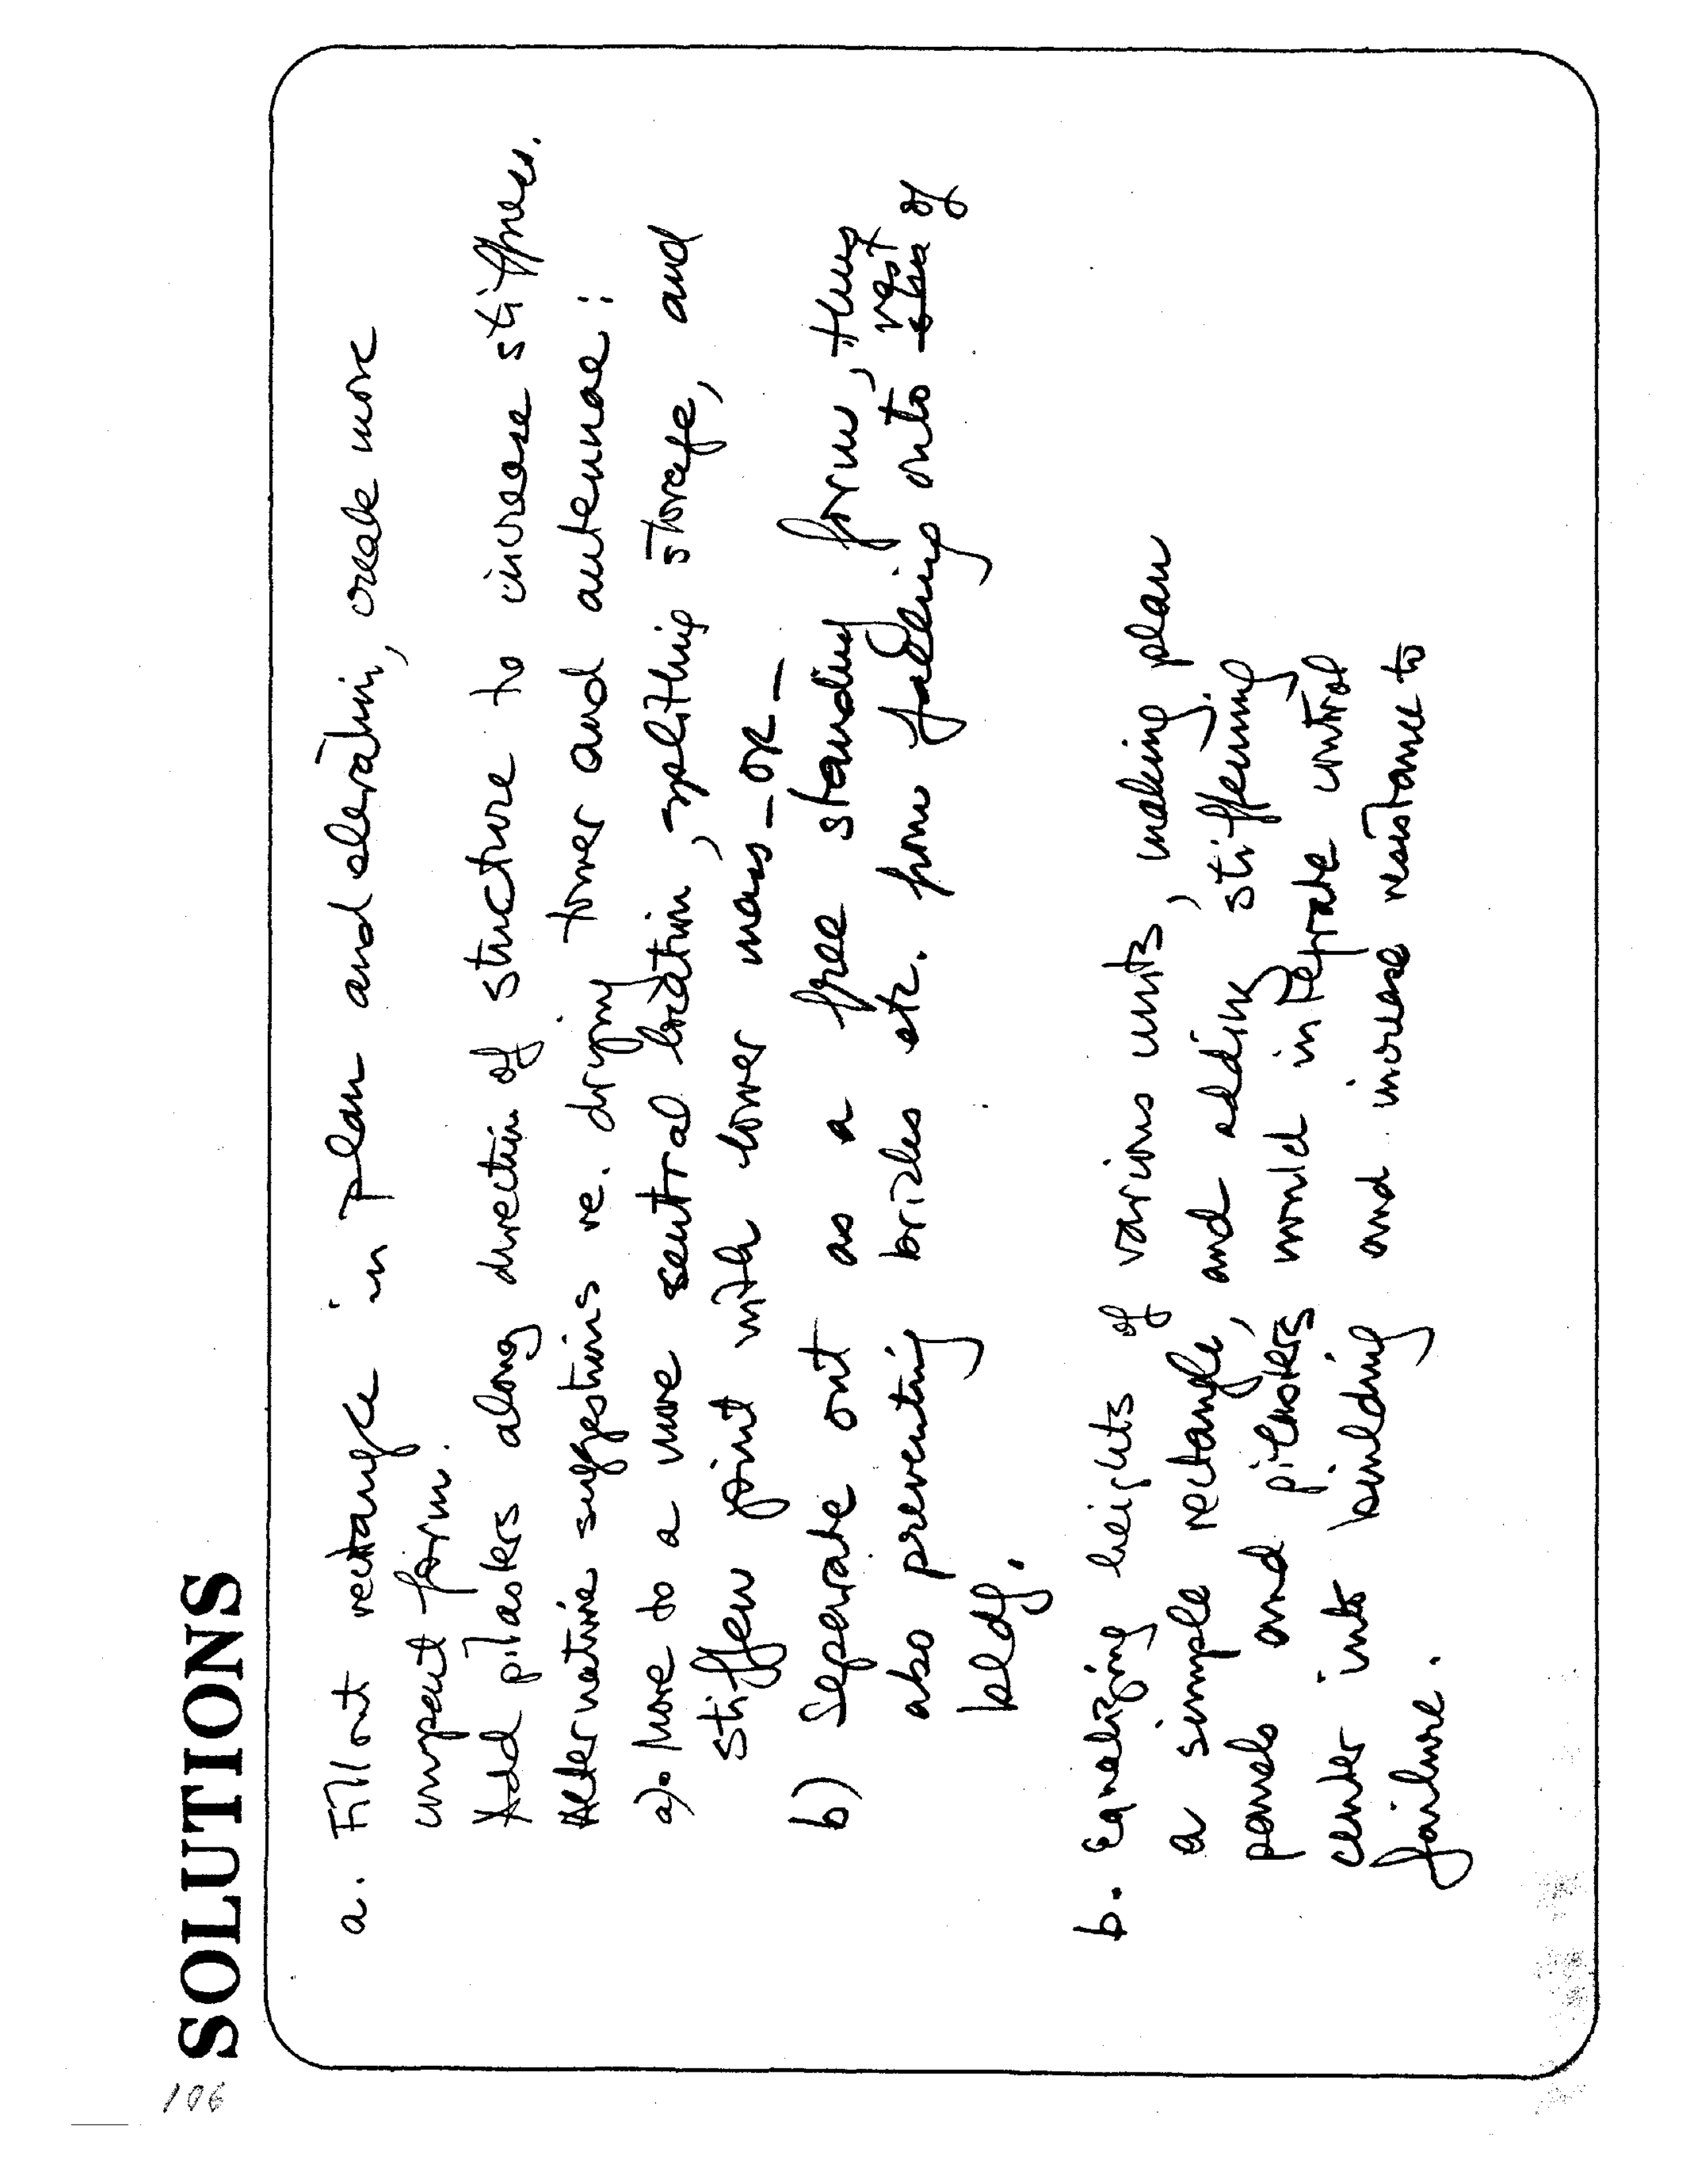 106
SOLUTIONS
a. Fill out rectangle in plan and elevation, create more
compact form.
Add pilasters along direction of structure to increase stiffness.
Alternative suggestions re. drying tower and antennae:
a). Move to a more central location, splitting storage, and
stiffen joint with lower mass - OR -
b) Separate out as a free standing form, thus
also preventing bricks etc. from falling onto rest of
bldg.
b. Equalizing heights of various units, making plan
a simple rectangle, and adding stiffening
panels and pilasters would integrate control
center into building and increase resistance to
failure.